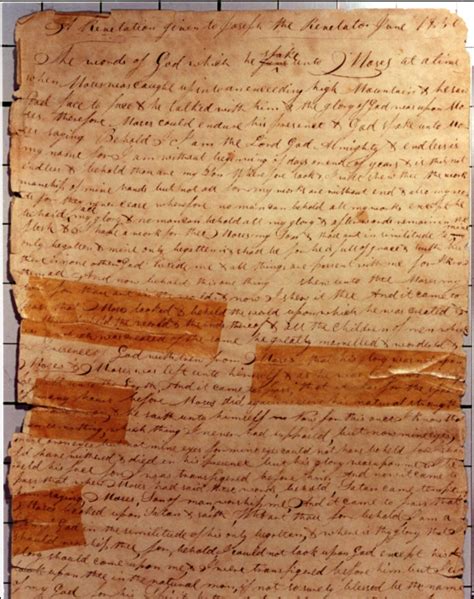 A Revelation given to Joseph the Revelator June 1830
The words of God which he spake unto Moses at a time
when Moses was caught up into an exceeding high Mountain & he saw
God face to face & he talked with him & the glory of God was upon Mo
ses therefore Moses could endure his presence & God spake unto Mo
ses saying Behold I am the Lord God Almighty & endless is
my name for I am without beginning of days or end of years & is this not
endless & behold thou art my Son Wherefore look & I will shew thee the work
manship of mine hands but not all for my works are without end & also my wor
for they never cease wherefore no man can behold all my works except he
behold all my glory & no man can behold all my glory & afterwards remain in the
flesh & I have a work for thee Moses my Son & thou art in similitude to
only begotten & mine only begotten is & shall be for he is full of grace & truth
there is none other God beside me & all things are present with me for I know
them all And now behold this one thing I shew unto thee Moses my
for thou art in the world & now I shew it thee And it came to
that Moses looked & beheld the world upon which he was created &
beheld the world & the ends thereof & all the Children of men which
created of the same he greatly marvelled & wondered &
God withdrew from Moses that his glory was not
Moses & Moses was left unto himself
the Earth And it came to pass that for the space
many hours before Moses did natural strength
& he saith unto himself now for this cause I know that
nothing which thing I never had supposed but now mine eyes
mine eyes but not mine eyes for mine eyes could not have beheld for I
have withered & died in his presence but his glory was upon me & I
beheld his face for I was transfigured before him And now it came to
pass that when Moses had said these words behold Satan came tempt
saying Moses Son of man worship me And it came to pass that
Moses looked upon Satan & saith Who art thou for behold I am a
Son of God in the similitude of his only begotten & where is thy glory that
worship thee for behold I could not look upon God except his
glory should come upon me & I were transfigured before him but I can
look upon thee in the natural man if not surely blessed be the name
of my God for his Spirit